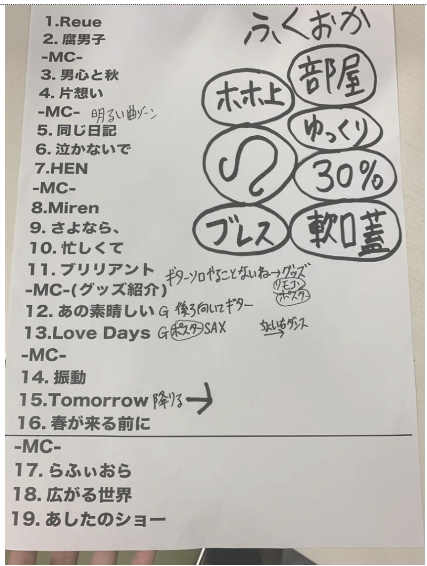 ふくおか
1.Reue
2. 腐男子
-MC-
3. 男心と秋
4. 片想い
-MC- 明るい曲ゾーン
5. 同じ日記
6. 泣かないで
7.HEN
-MC-
8.Miren
9. さよなら、
10. 忙しくて
11. ブリリアント ギターソロやることないね→グッズ
リモコン
ポスター
-MC-(グッズ紹介)
12. あの素晴しい G 後ろ向いてギター
13.Love Days G ポスターSAX
-MC-
14. 振動
15.Tomorrow 降りる→
16. 春が来る前に
-MC-
17. らふぃおら
18. 広がる世界
19. あしたのショー
部屋
ホホ上
ゆっくり
30%
ブレス
軟口蓋